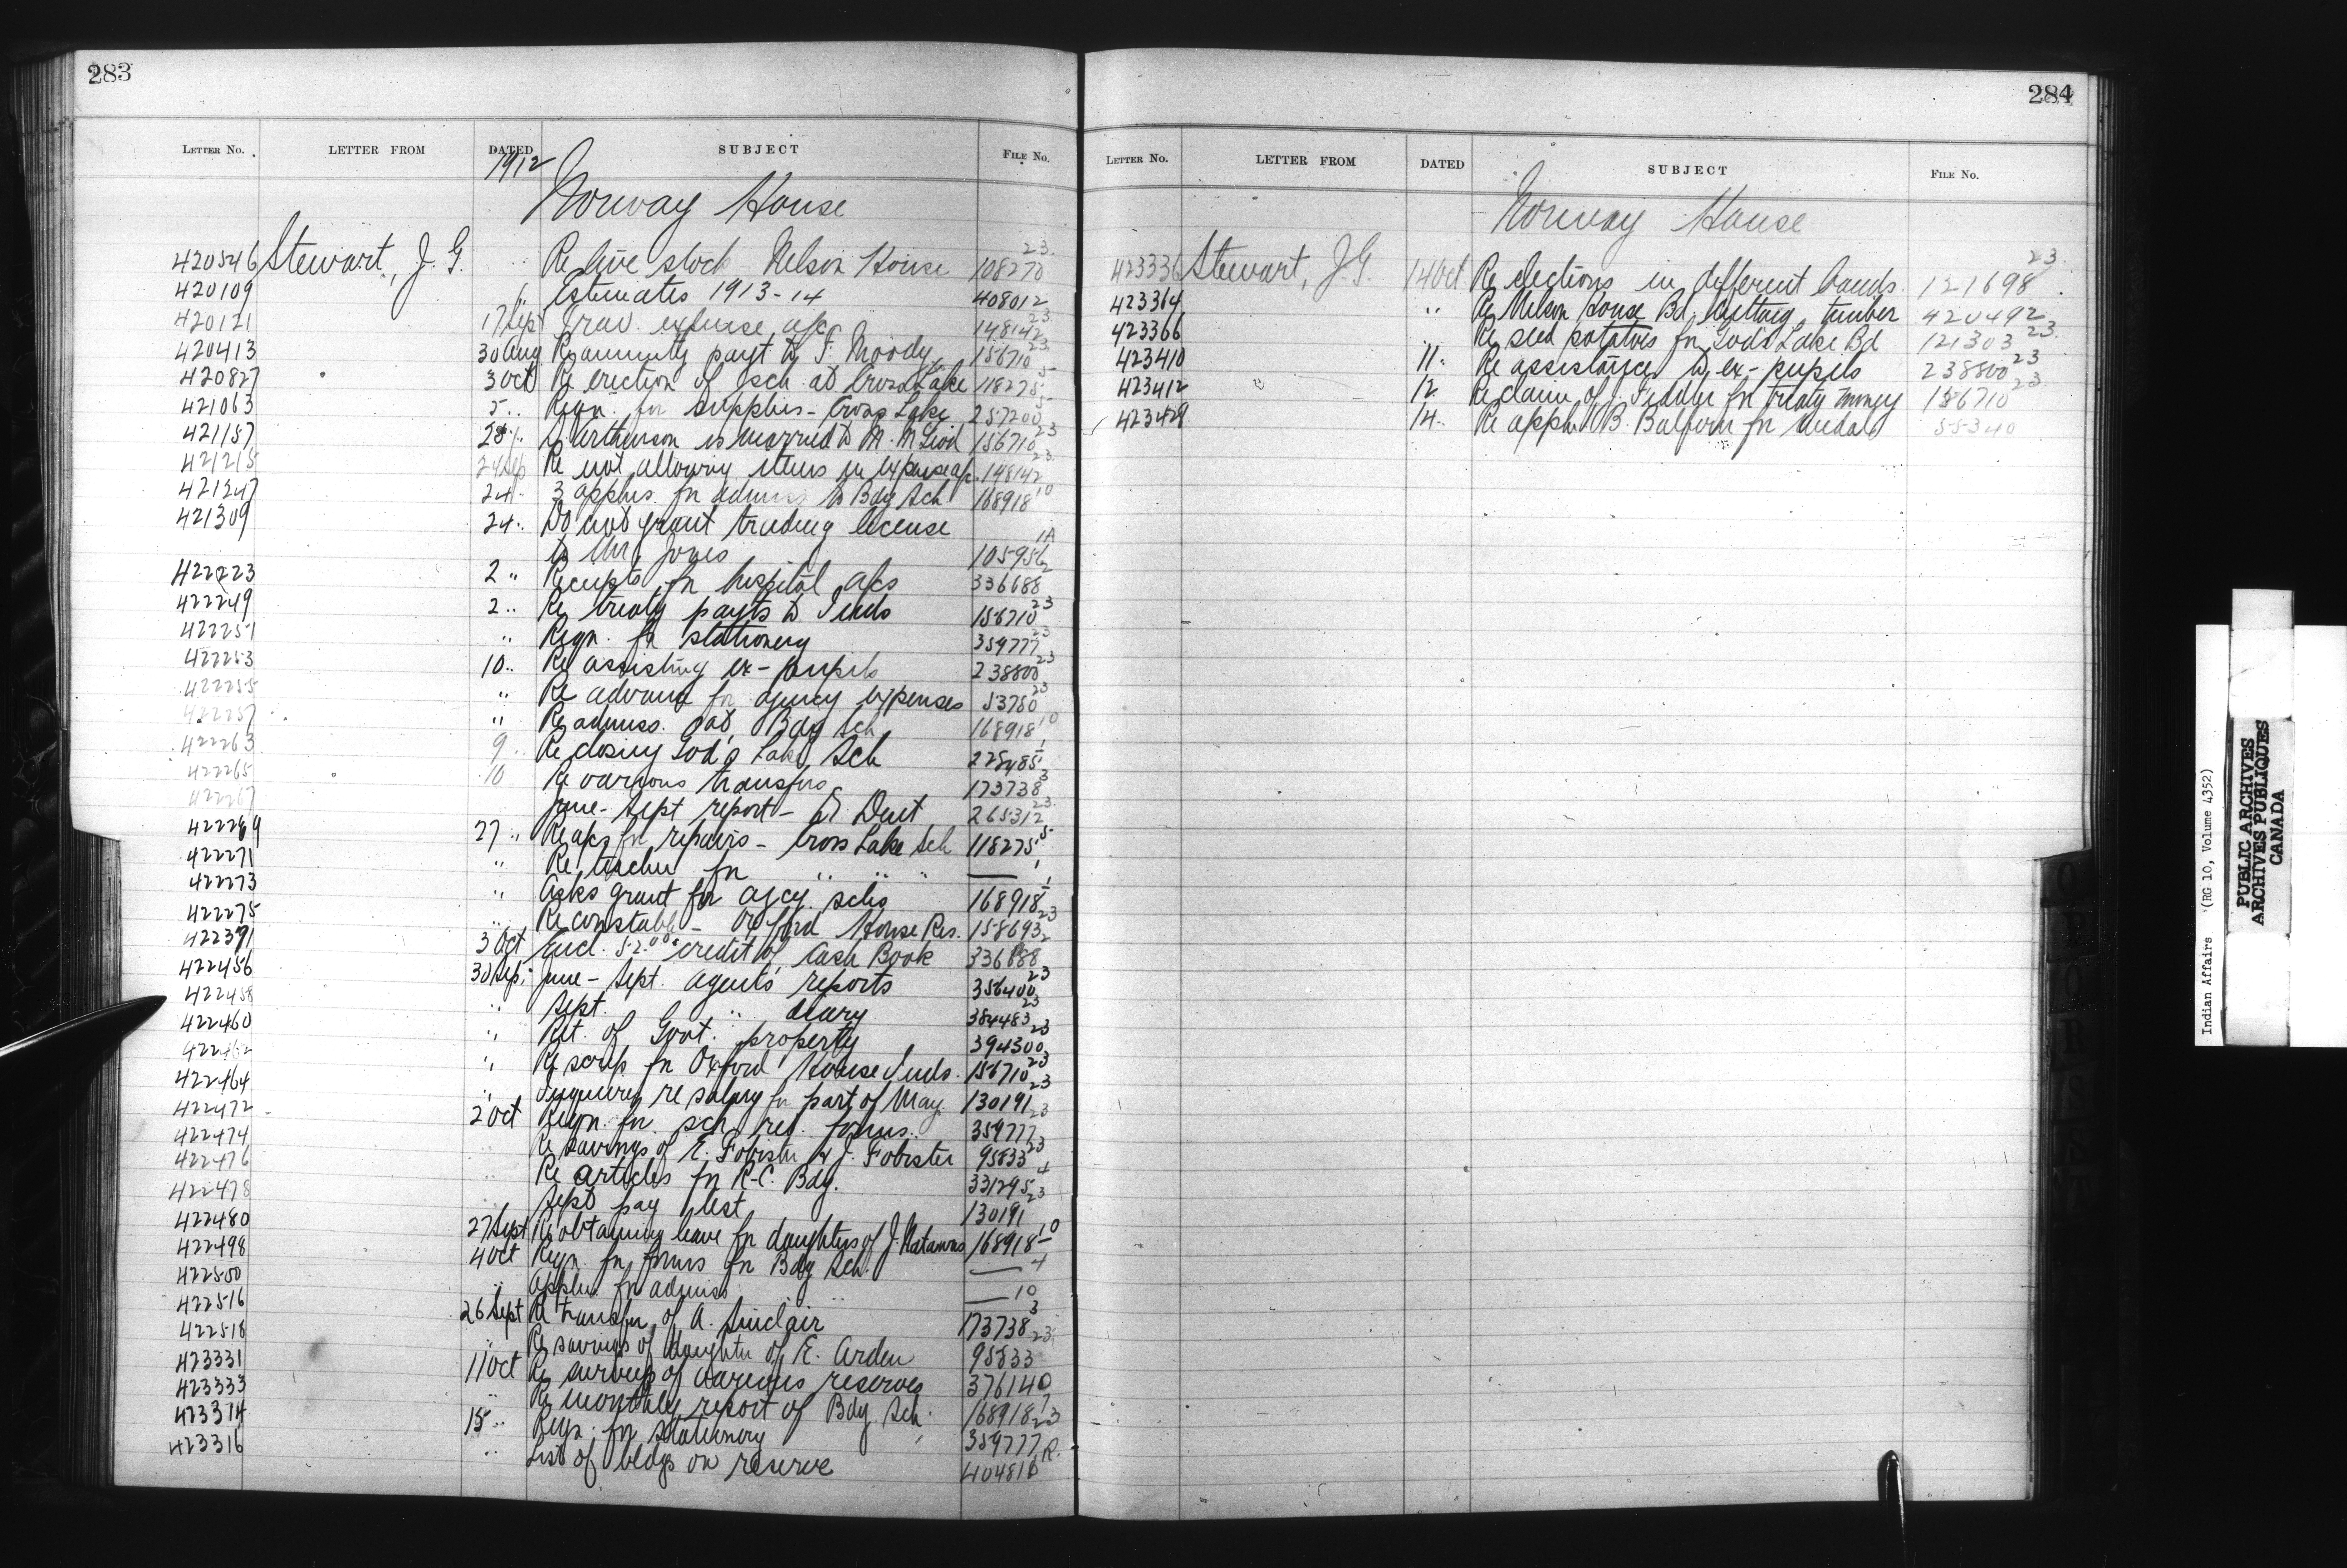 283
LETTER NO. LETTER FROM DATED SUBJECT FILE NO.
1912
Norway House
420546 Stewart, J. G. " Re live stock - Nelson House 108270 23.
420109 " Estimates 1913-14 408012
420121 17 Sept Trav. expense a/c 148142 23.
420413 30 Aug Re annuity payt to F. Moody 156710 23.
420827 3 Oct Re erection of sch. at Cross Lake 118275 5
421063 5 " Reqn. for supplies - Cross Lake 257200 5
421157 28 " is married to M. McLeod 156710 23
421215 24 Sep Re not allowing items in expense a/c. 148142 23.
421247 24 " 3 applns. for admiss to Bdg Sch 168918 10
421309 24 " Do not grant trading license
to Mr. Jones 105956 1A
422223 2 " Receipts for hospital a/cs 336688 2
422249 2 " Re treaty payts to Inds 156710 23
422251 " Reqn. for stationery 359777 23
422253 10 " Re assisting ex-pupils 238800 23
422255 " Re advance for agency expenses 53780 23
422257 " Re admiss. Bdg Sch 168918 10
422263 9 " Re closing God's Lake Sch 225485 1
422265 10 Re various transfers 173738 3
422267 June - Sept report - Dr Dent 265312 23.
422269 27 " Re a/cs for repairs - Cross Lake Sch 118275 5
422271 " Re teacher for " " " — 1
422273 " Asks grant for agcy. schs 168918 1
422275 " Re constable - Oxford House Res. 158693 23
422391 3 Oct Encl. 52.00 credit of Cash Book 336688 2
422456 30 Sep. June - Sept. agent's reports 356400 23
422458 " Sept. " diary 384483 23
422460 " Ret. of Govt. property 394300 23
422462 " Re scrip for Oxford House Inds. 156710 23
422464 " Inquires re salary for part of May 130191 23
422472 2 Oct Reqn. for sch. ret. forms. 359777 23
422474 " Re savings of E. Fobister & J. Fobister 95833 23
422476 " Re articles for R-C. Bdg. 331295 4
422478 " Sept pay list 130191 23
422480 27 Sept Re obtaining leave for daughters of J. 168918 10
422498 4 Oct Reqn. for forms for Bdg Sch. — 4
422500 " Appln for admiss — 10
422516 26 Sept Re transfer of A. Sinclair 173738 3
422518 " Re savings of daughter of E. Arden 95833 23.
423331 11 Oct Re surveys of various reserves 376140
423333 " Re monthly report of Bdg Sch. 168918 7
423314 15 " Reqn. for stationery 359777 23
423316 " List of bldgs on reserve 404816 R.
284
LETTER NO. LETTER FROM DATED SUBJECT FILE NO.
Norway House
423336 Stewart, J. G. 14 Oct Re elections in different bands. 121698 23.
423364 " Re Nelson House Bd. cutting timber 420492
423366 " Re seed potatoes for God's Lake Bd 121303 23.
423410 11 " Re assistance to ex-pupils 238800 23
423412 " 12 Re claim of J. Fiddler for treaty money 156710 23.
423429 14 " Re appln. B. Balfour for medal 55340
Indian Affairs (RG 10, Volume 4352)
PUBLIC ARCHIVES
ARCHIVES PUBLIQUES
CANADA